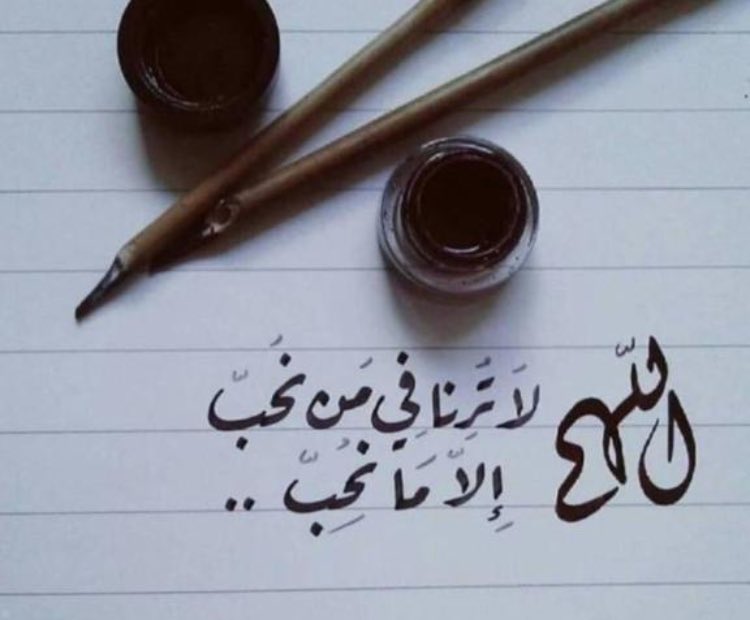 اللهم لَا تُرِنا فِي مَن نُحبّ
إِلاَّ مَا نُحِبّ ..